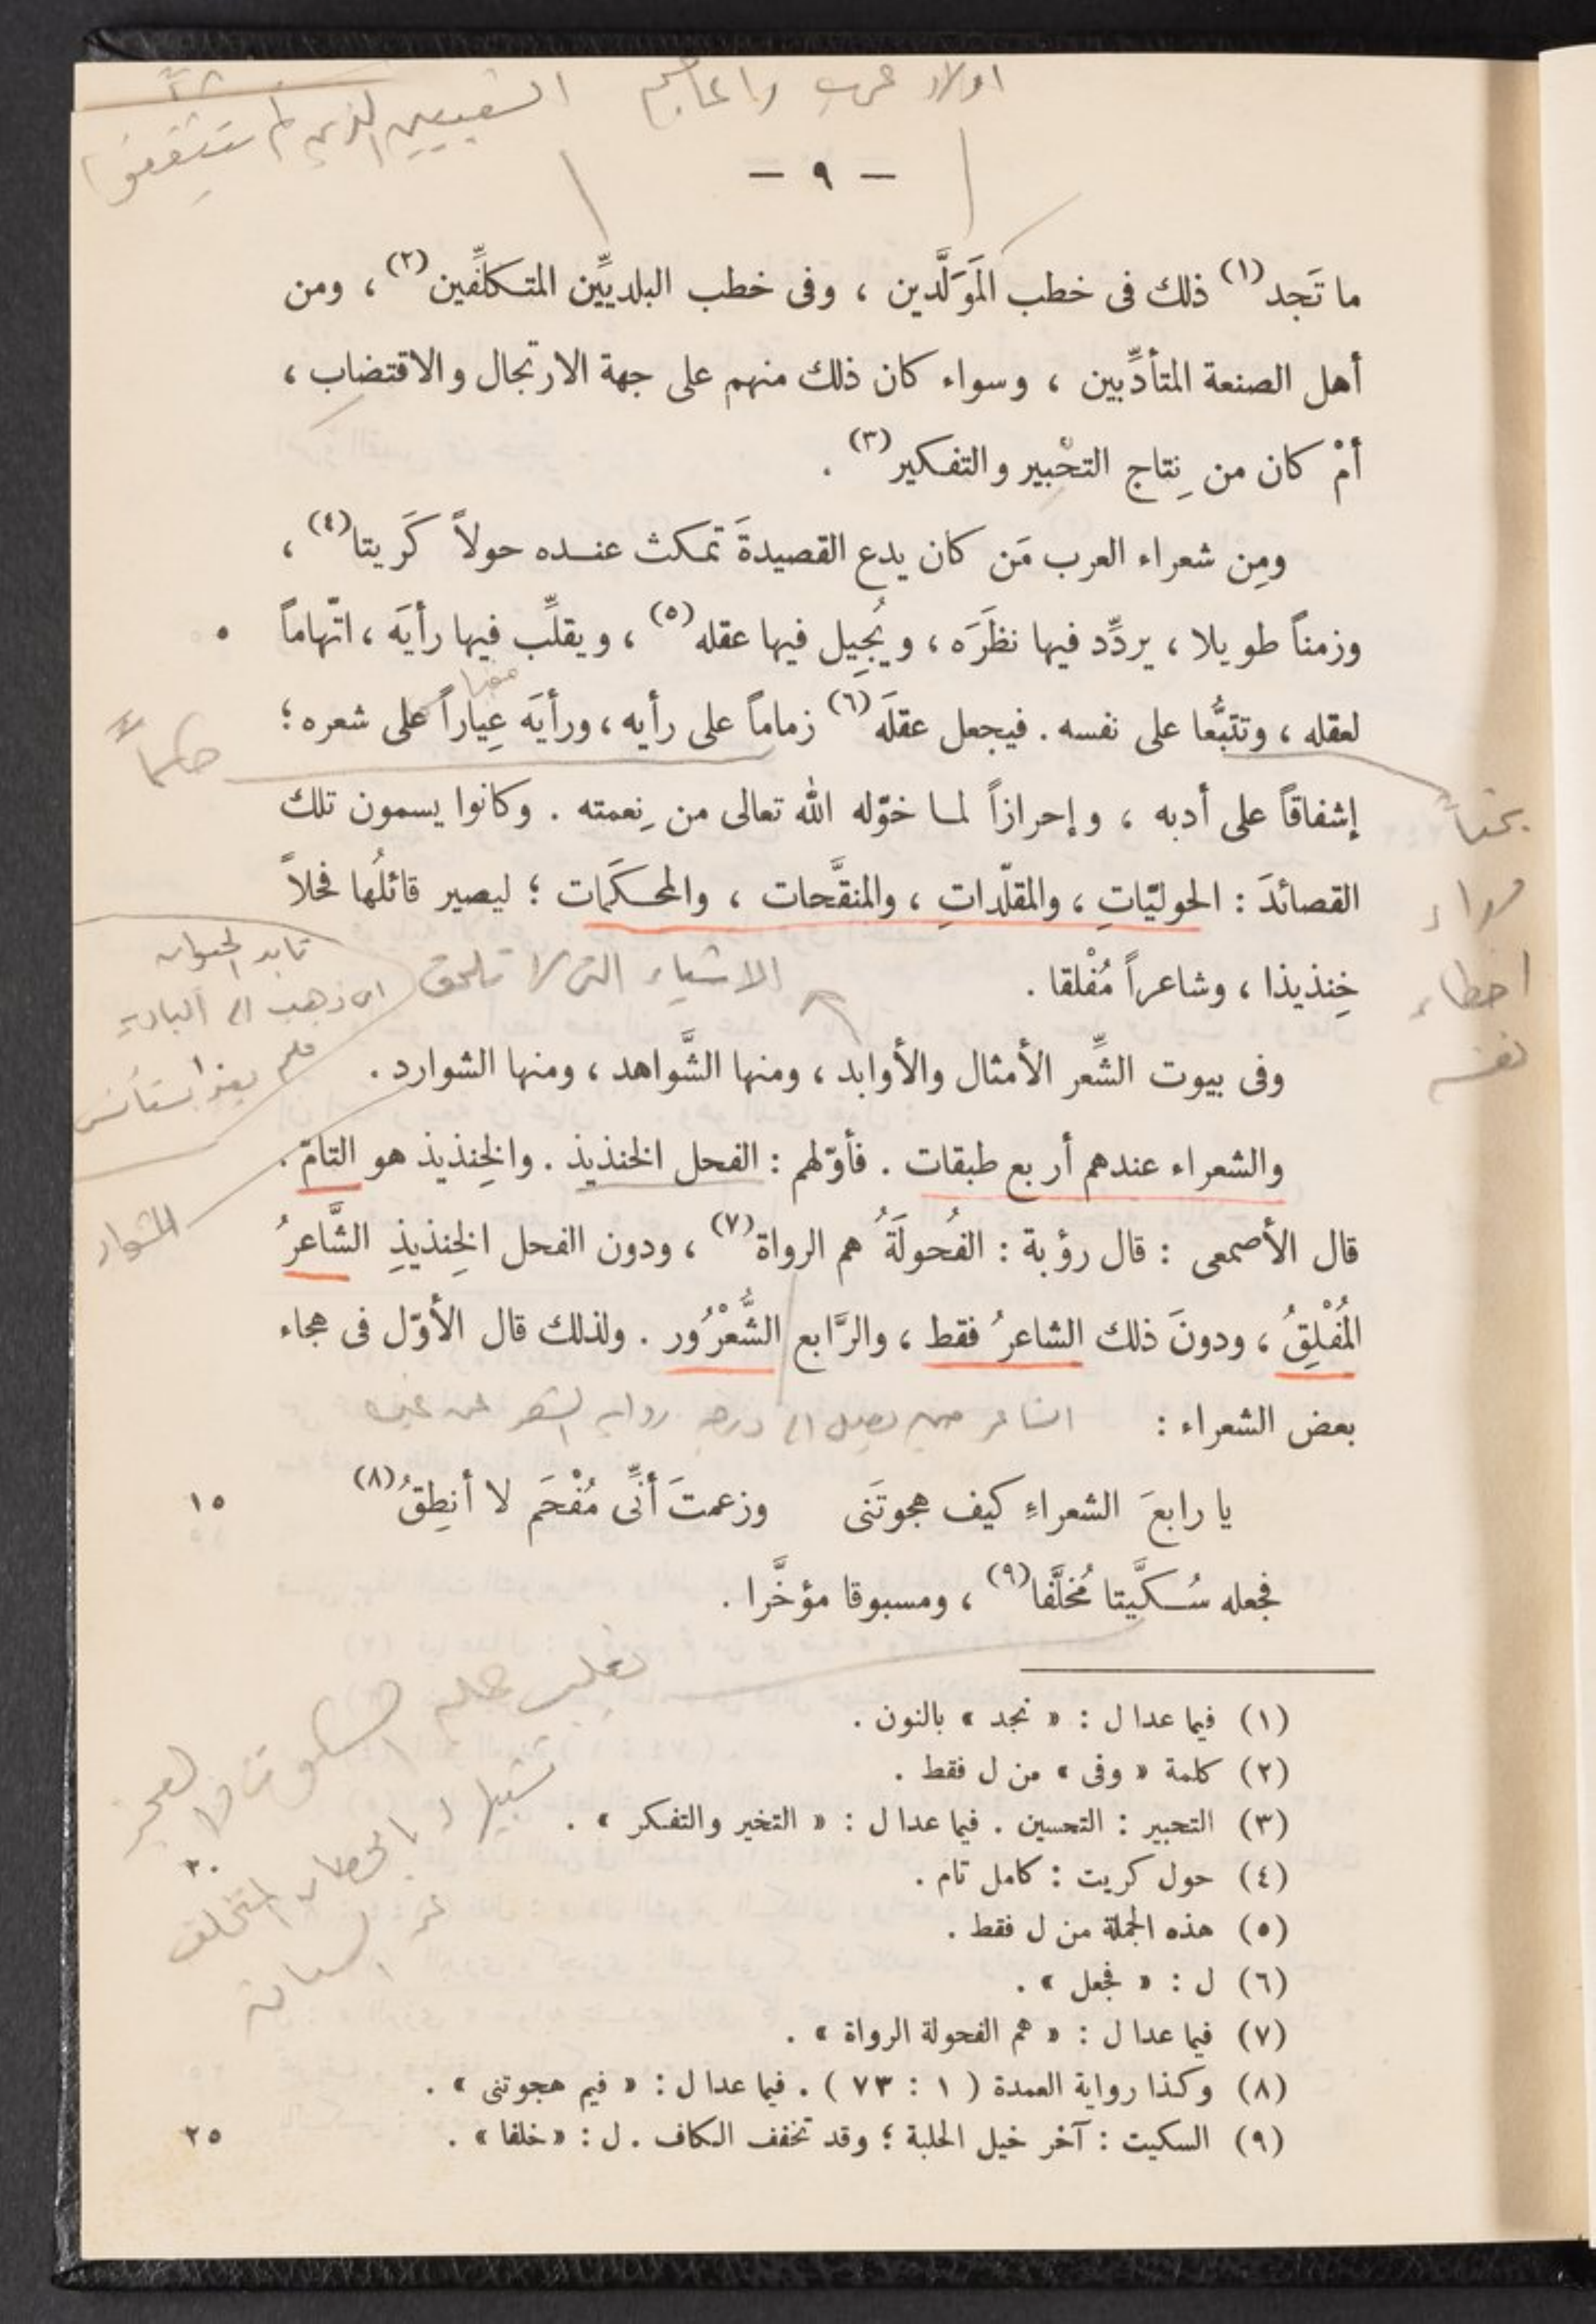 اولاد عرب واعاجم
الشعبيين الذين لم يتثقفوا
— ٩ —
ما تَجد(١) ذلك فى خطب المَوَلَّدين ، وفى خطب البلديِّين المتكلِّفين(٢) ، ومن
أهل الصنعة المتأدِّبين ، وسواء كان ذلك منهم على جهة الارتجال والاقتضاب ،
أمْ كان من نِتاج التحْبير والتفكير(٣) .
ومِن شعراء العرب مَن كان يدع القصيدةَ تمكث عنده حولاً كَريتا(٤) ،
وزمناً طويلا ، يردِّد فيها نظَرَه ، ويُجِيل فيها عقله(٥) ، ويقلِّب فيها رأيَه ، اتّهاماً ٥
لعقله ، وتتبُّعا على نفسه . فيجعل عقلَه(٦) زماماً على رأيه ، ورأيَه عِياراً على شعره ؛
إشفاقاً على أدبه ، وإحرازاً لما خوّله الله تعالى من نِعمته . وكانوا يسمون تلك
القصائدَ : الحوليّاتِ ، والمقلّداتِ ، والمنقَّحات ، والمحكَمات ؛ ليصير قائلُها فحلاً
وراء
اخطاء
نفسه
خِنذيذا ، وشاعراً مُفْلقا .
الاشياء التى لا تلحق
تابد الحيوان
اى ذهب الى البادية
فلم يعد
وفى بيوت الشِّعر الأمثال والأوابد ، ومنها الشَّواهد ، ومنها الشوارد .
والشعراء عندهم أربع طبقات . فأوّلهم : الفحل الخنذيذ . والخِنذيذ هو التامّ .
قال الأصمعى : قال رؤبة : الفُحولَةُ هم الرواة(٧) ، ودون الفحل الخِنذيذِ الشَّاعرُ
المُفْلِقُ ، ودونَ ذلك الشاعرُ فقط ، والرَّابع الشُّعْرُور . ولذلك قال الأوّل فى هجاء
بعض الشعراء :
الشاعر حين يصل الى درجة رواية الشعر عن غيره
يا رابعَ الشعراءِ كيف هجوتَنى وزعمتَ أنِّى مُفْحَم لا أنطِقُ(٨) ١٥
فجعله سُكَّيتا مُخلَّفا(٩) ، ومسبوقا مؤخَّرا .
تشبيها له بالحصان المتخلف
عن السباق
(١) فيما عدا ل : « نجد » بالنون .
(٢) كلمة « وفى » من ل فقط .
(٣) التحبير : التحسين . فيما عدا ل : « التخير والتفكر » .
(٤) حول كريت : كامل تام . ٢٠
(٥) هذه الجملة من ل فقط .
(٦) ل : « فجعل » .
(٧) فيما عدا ل : « هم الفحولة الرواة » .
(٨) وكذا رواية العمدة ( ١ : ٧٣ ) . فيما عدا ل : « فيم هجوتنى » .
(٩) السكيت : آخر خيل الحلبة ؛ وقد تخفف الكاف . ل : « خلفا » . ٢٥